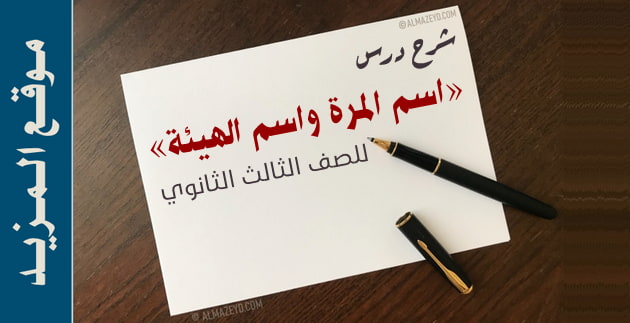 © ALMAZEYD.COM
شرح درس
«اسم المرة واسم الهيئة»
للصف الثالث الثانوي
© ALMAZEYD.COM
موقع المزيد